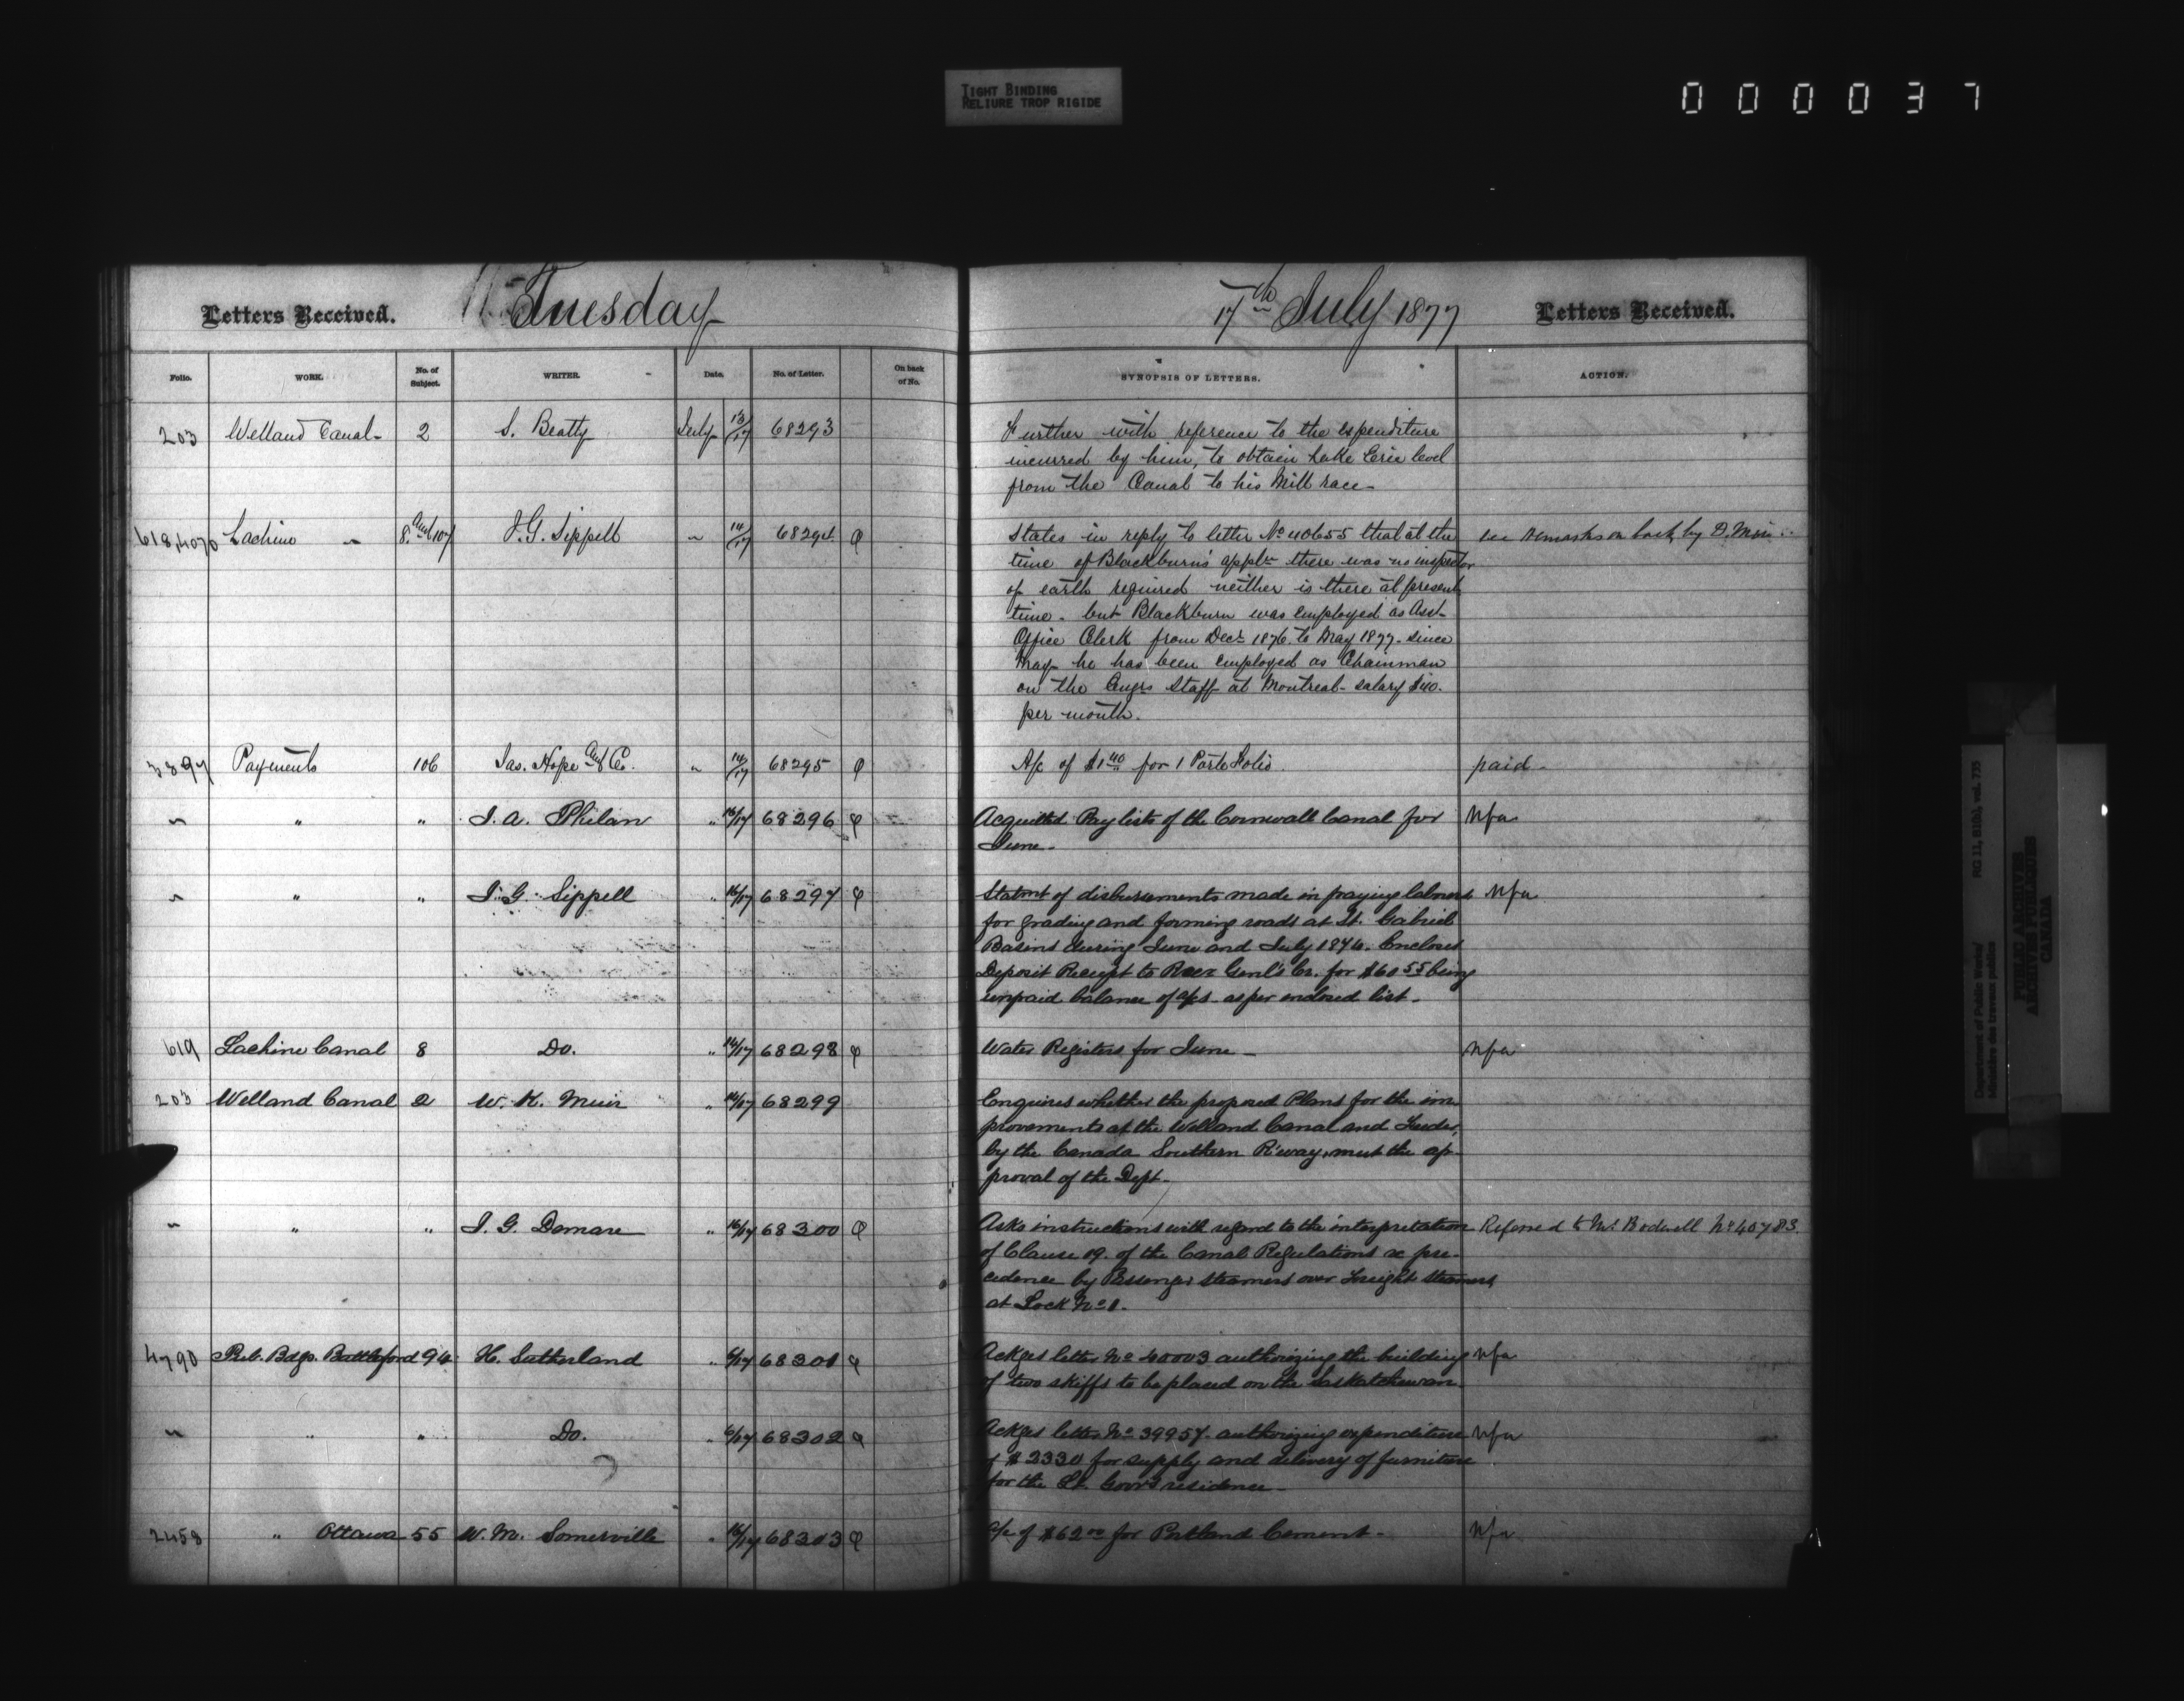 TIGHT BINDING
RELIURE TROP RIGIDE
000037
Letters Received. Tuesday 17th July 1877 Letters Received.
Folio. WORK. No. of Subject. WRITER. Date. No. of Letter. On back of No. SYNOPSIS OF LETTERS. ACTION.
203 Welland Canal 2 S. Beatty July 13/17 68293 Further with reference to the expenditure
incurred by him, to obtain Lake Erie level
from the Canal to his Mill race
618,4070 Lachine " 8 and 107 J.G. Sippell " 14/17 68294 φ States in reply to letter No 40655 that at the see remarks on back by D. Min
time of Blackburn's appln there was no inspector
of earth required neither is there at present
time. but Blackburn was employed as Asst
Office Clerk from Decr 1876 to May 1877. since
May he has been employed as Chainman
on the Engrs Staff at Montreal salary $40.
per month.
3897 Payments 106 Jas. Hope and Co. " 14/17 68295 φ A/c of $1 40 for 1 Porte Folio. paid
" " " J. A. Phelan " 16/17 68296 φ Acquitted Pay lists of the Cornwall Canal for Nfa
June
" " " J. G. Sippell " 16/17 68297 φ Statmt of disbursements made in paying laborers Nfa
for grading and forming roads at St. Gabriel
Basins during June and July 1876. Encloses
Deposit Receipt to Recr Genl's Cr. for $60 55 being
unpaid balance of a/cs as per endorsed list
619 Lachine Canal 8 Do. " 16/17 68298 φ Water Registers for June Nfa
203 Welland Canal 2 W. K. Muir " 14/17 68299 Enquires whether the proposed Plans for the im
provements at the Welland Canal and Feeder,
by the Canada Southern R'way, meet the ap
proval of the Dept.
" " " J. G. Demare " 16/17 68300 φ Asks instructions with regard to the interpretation Referred to Mr Bodwell No 40783.
of Clause 19. of the Canal Regulations re pre-
cedence by Passenger steamers over Freight steamers
at Lock No 1.
4790 Pub. Bdgs. Battleford 94 H. Sutherland " 6/17 68301 φ Ackges letter No 40003 authorizing the building Nfa
of two skiffs to be placed on the Saskatchewan
" " " Do. " 6/17 68302 φ Ackges letter No 39957 authorizing expenditure Nfa
of $2330 for supply and delivery of furniture
for the Lt. Govr's residence
2458 " Ottawa 55 W. M. Somerville " 16/17 68303 φ A/c of $62 00 for Portland Cement Nfa
Department of Public Works/
Ministère des travaux publics
RG 11, B1(b), vol. 735
PUBLIC ARCHIVES
ARCHIVES PUBLIQUES
CANADA